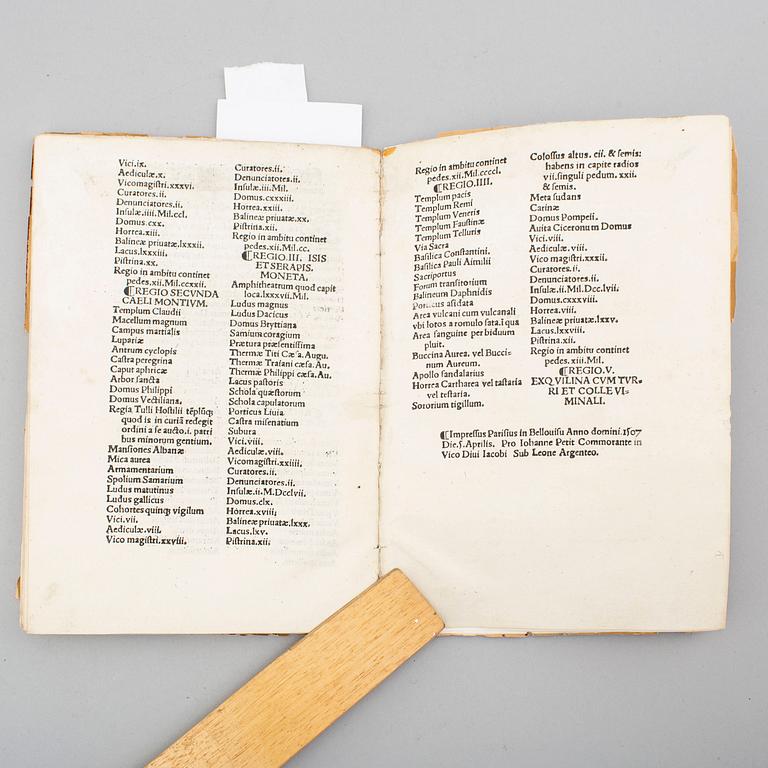 Vici.ix.
Aediculæ.x.
Vicomagistri.xxxvi.
Curatores.ii.
Denunciatores.ii.
Insulæ.iiii.Mil.ccl.
Domus.cxx.
Horrea.xiii.
Balineæ priuatæ.lxxxii.
Lacus.lxxxiii.
Pistrina.xx.
Regio in ambitu continet
pedes.xii.Mil.ccxxii.
¶REGIO SECVNDA
CAELI MONTIVM.
Templum Claudii
Macellum magnum
Campus martialis
Lupariæ
Antrum cyclopis
Castra peregrina
Caput aphricæ
Arbor sancta
Domus Philippi
Domus Vectiliana.
Regia Tulli Hostilii tẽplũq;
quod is in curiã redegit
ordini a se aucto.i. patri
bus minorum gentium.
Mansiones Albanæ
Mica aurea
Armamentarium
Spolium Samarium
Ludus matutinus
Ludus gallicus
Cohortes quinq; vigilum
Vici.vii.
Aediculæ.viii.
Vico magistri.xxviii.
Curatores.ii.
Denunciatotes.ii.
Insulæ.iii.Mil.
Domus.cxxxiii.
Horrea.xxiii.
Balineæ priuatæ.xx.
Pistrina.xii.
Regio in ambitu continet
pedes.xii.Mil.cc.
¶REGIO.III. ISIS
ET SERAPIS.
MONETA.
Amphitheatrum quod capit
loca.lxxxvii.Mil.
Ludus magnus
Ludus Dacicus
Domus Bryttiana
Samium coragium
Prætura præsentissima
Thermæ Titi Cæsa. Augu.
Thermæ Traiani cæsa. Au.
Thermæ Philippi cæsa. Au.
Lacus pastoris
Schola quæstorum
Schola capulatorum
Porticus Liuia
Castra misenatium
Subura
Vici.viii.
Aediculæ.viii.
Vicomagistri.xxiiii.
Curatores.ii.
Denunciatores.ii.
Insulæ.ii.M.Dcclvii.
Domus.clx.
Horrea.xviii;
Balineæ priuatæ.lxxx.
Lacus.lxv.
Pistrina.xii.
Regio in ambitu continet
pedes.xii.Mil.ccccl.
¶REGIO.IIII.
Templum pacis
Templum Remi
Templum Veneris
Templum Faustinæ
Templum Telluris
Via Sacra
Basilica Constantini.
Basilica Pauli Aimilii
Sacriportus
Forum transitorium
Balineum Daphnidis
absidata
Area vulcani cum vulcanali
vbi lotos a romulo sata.ĩ qua
Area sanguine per biduum
pluit.
Buccina Aurea. vel Bucci-
num Aureum.
Apollo sandalarius
Horrea Chartarea vel tastaria
vel testaria.
Sororium tigillum.
Colossus altus. cii. & semis:
habens in capite radios
vii.singuli pedum. xxii.
& semis.
Meta sudans
Carinæ
Domus Pompeii.
Auita Ciceronum Domus
Vici.viii.
Aediculæ.viii.
Vico magistri.xxxii.
Curatores.ii.
Denunciatores.ii.
Insulæ.ii.Mil.Dcc.lvii.
Domus.cxxxviii.
Horrea.viii.
Balineæ priuatæ.lxxv.
Lacus.lxxviii.
Pistrina.xii.
Regio in ambitu continet
pedes.xiii.Mil.
¶REGIO.V.
EXQVILINA CVM TVR-
RI ET COLLE VI-
MINALI.
¶Impressus Parisius in Bellouisu Anno domini.1507
Die.5.Aprilis. Pro Iohanne Petit Commorante in
Vico Diui Iacobi Sub Leone Argenteo.